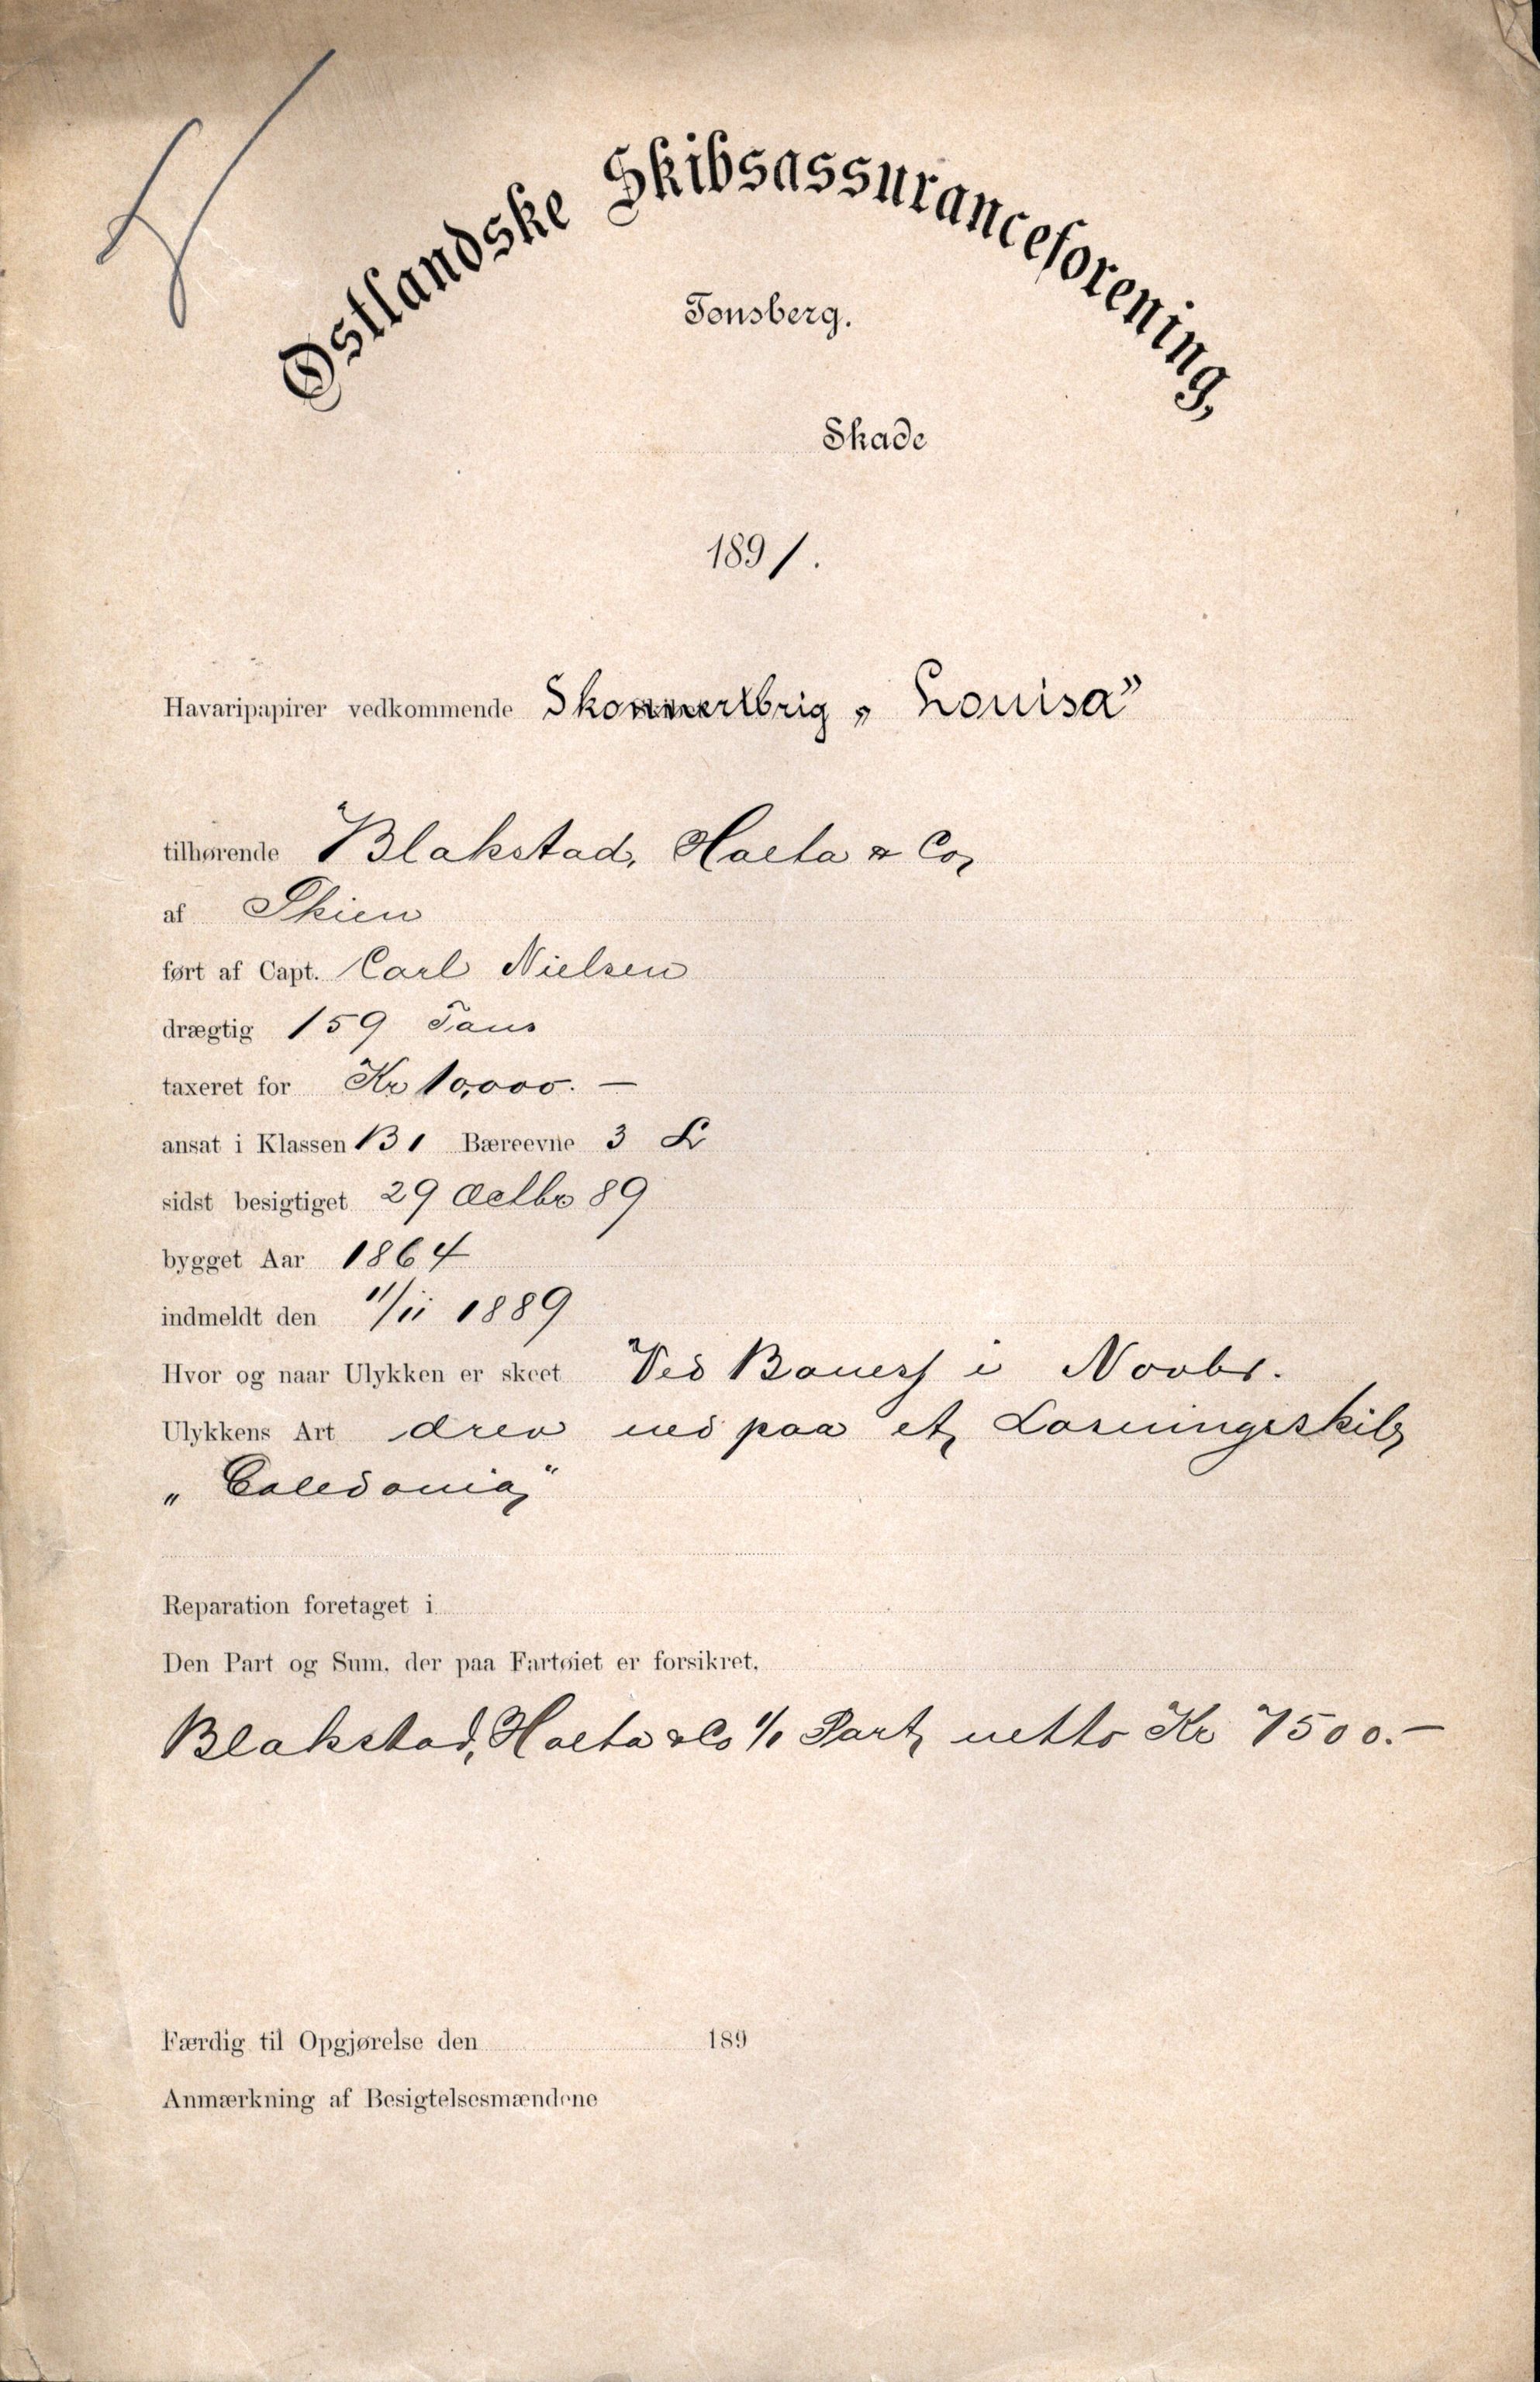 Østlandske Skibsassuranceforening,
Tønsberg.
Skade
1891.
Havaripapirer vedkommende Skonnertbrig „Louisa”
tilhørende Blakstad, Holta & Co,
af Skien
ført af Capt. Carl Nielsen
drægtig 159 Tons
taxeret for Kr 10,000.—
ansat i Klassen B1 Bæreevne 3 L
sidst besigtiget 29 Octbr 89
bygget Aar 1864
indmeldt den 11/11 1889
Hvor og naar Ulykken er skeet Ved i Novbr.
Ulykkens Art drev ned paa et Losningsskib
„Caledonia”
Reparation foretaget i
Den Part og Sum, der paa Fartøiet er forsikret,
Blakstad, Holta & Co 1/1 Part, netto Kr 7500.—
Færdig til Opgjørelse den 189
Anmærkning af Besigtelsesmændene